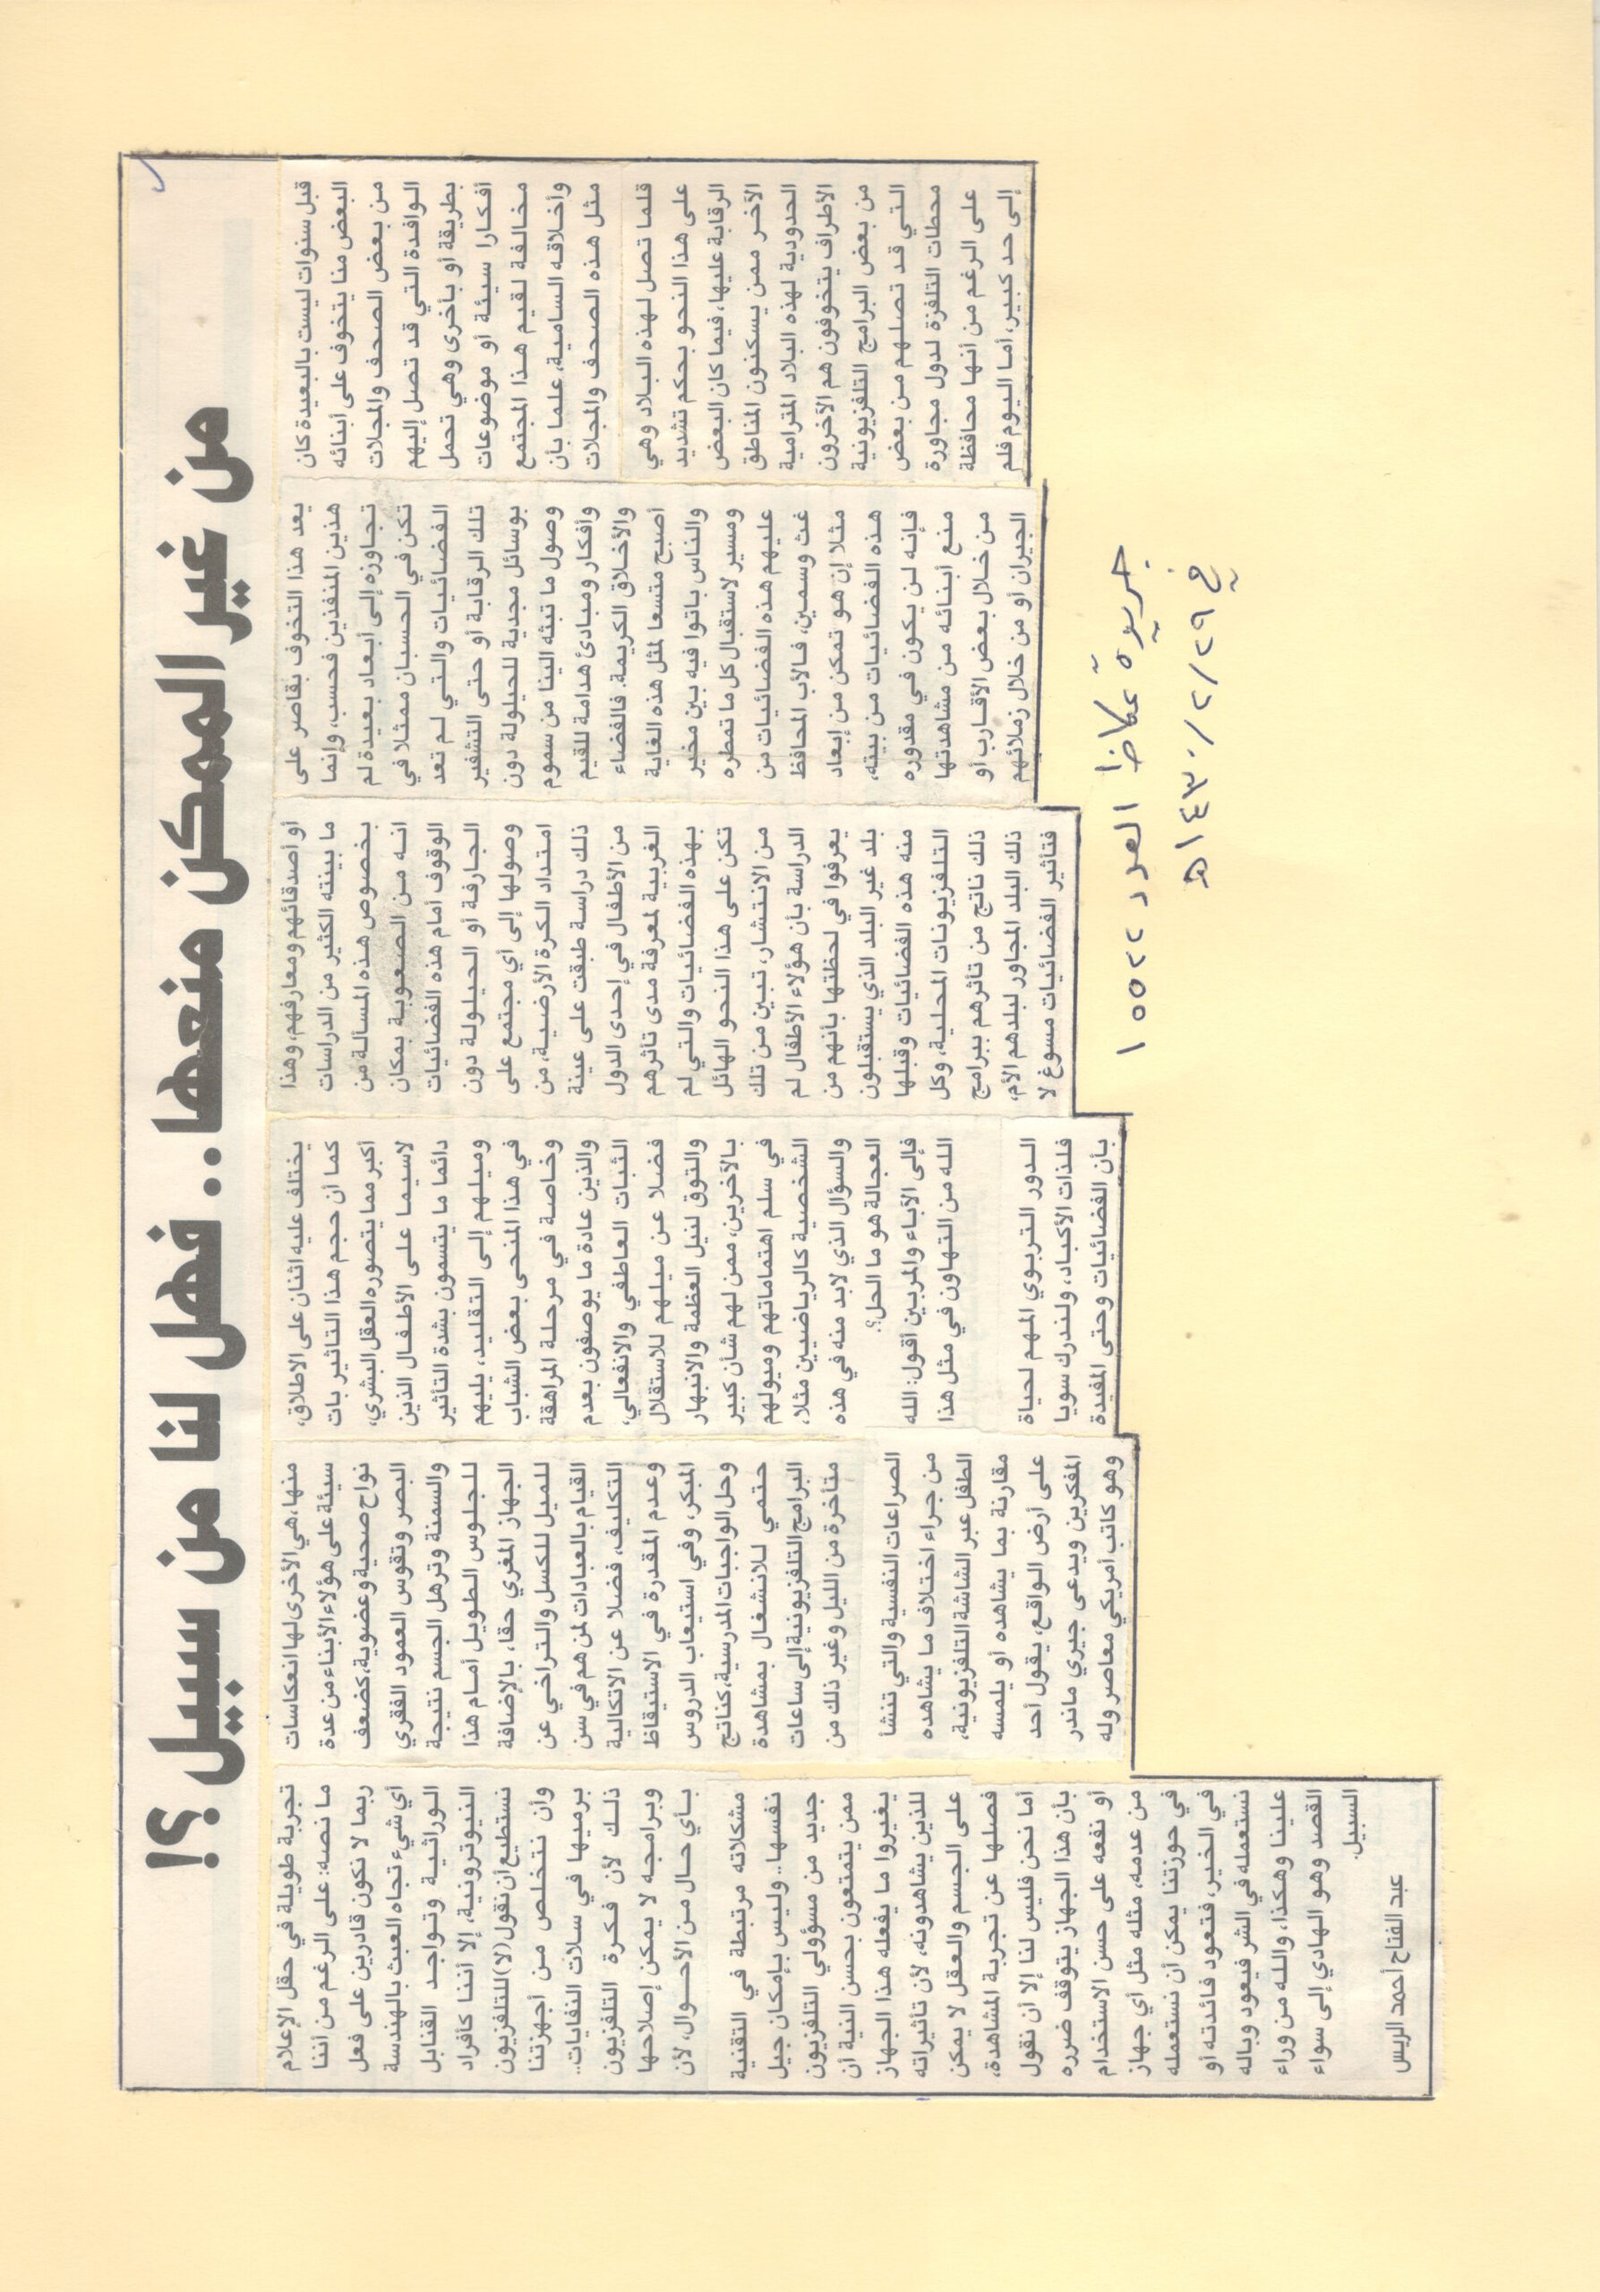 من غير الممكن منعها.. فهل لنا من سبيل ؟!
قبل سنوات ليست بالبعيدة كان
البعض منا يتخوف على أبنائه
من بعض الصحف والمجلات
الوافدة التي قد تصل إليهم
بطريقة أو بأخرى وهي تحمل
أفكارا سيئة أو موضوعات
مخالفة لقيم هذا المجتمع
وأخلاقه السامية، علما بأن
مثل هذه الصحف والمجلات
قلما تصل لهذه البلاد وهي
على هذا النحو بحكم تشديد
الرقابة عليها، فيما كان البعض
الآخر ممن يسكنون المناطق
الحدودية لهذه البلاد المترامية
الأطراف يتخوفون هم الآخرون
من بعض البرامج التلفزيونية
التي قد تصلهم من بعض
محطات التلفزة لدول مجاورة
على الرغم من أنها محافظة
إلى حد كبير، أما اليوم فلم
يعد هذا التخوف بقاصر على
هذين المنفذين فحسب، وإنما
تجاوزه إلى أبعاد بعيدة لم
تكن في الحسبان ممثلا في
الفضائيات والتي لم تعد
تلك الرقابة أو حتى التشفير
بوسائل مجدية للحيلولة دون
وصول ما تبثه الينا من سموم
وأفكار ومبادئ هدامة للقيم
والأخلاق الكريمة. فالفضاء
أصبح متسعا لمثل هذه الغاية
والناس باتوا فيه بين مخير
ومسير لاستقبال كل ما تمطره
عليهم هذه الفضائيات من
غث وسمين، فالأب المحافظ
مثلا إن هو تمكن من إبعاد
هذه الفضائيات من بيته،
فإنه لن يكون في مقدوره
منع أبنائه من مشاهدتها
من خلال بعض الأقارب أو
الجيران أو من خلال زملائهم
أو أصدقائهم ومعارفهم، وهذا
ما بينته الكثير من الدراسات
بخصوص هذه المسألة من
انه من الصعوبة بمكان
الوقوف أمام هذه الفضائيات
الجارفة أو الحيلولة دون
وصولها إلى أي مجتمع على
امتداد الكرة الأرضية، من
ذلك دراسة طبقت على عينة
من الأطفال في إحدى الدول
الغربية لمعرفة مدى تأثرهم
بهذه الفضائيات والتي لم
تكن على هذا النحو الهائل
من الانتشار، تبين من تلك
الدراسة بأن هؤلاء الأطفال لم
يعرفوا في لحظتها بأنهم من
بلد غير البلد الذي يستقبلون
منه هذه الفضائيات وقبلها
التلفزيونات المحلية، وكل
ذلك ناتج من تأثرهم ببرامج
ذلك البلد المجاور لبلدهم الأم،
فتأثير الفضائيات مسوغ لا
يختلف عليه اثنان على الاطلاق،
كما أن حجم هذا التأثير بات
أكبر مما يتصوره العقل البشري،
لاسيما على الأطفال الذين
دائما ما يتسمون بشدة التأثير
وميلهم إلى التقليد، يليهم
في هذا المنحى بعض الشباب
وخاصة في مرحلة المراهقة
والذين عادة ما يوصفون بعدم
الثبات العاطفي والانفعالي،
فضلا عن ميلهم للاستقلال
والتوق لنيل العظمة والانبهار
بالآخرين، ممن لهم شأن كبير
في سلم اهتماماتهم وميولهم
الشخصية كالرياضيين مثلا،
والسؤال الذي لابد منه في هذه
العجالة هو ما الحل؟.
فإلى الآباء والمربين أقول: الله
الله من التهاون في مثل هذا
الدور التربوي المهم لحياة
فلذات الأكباد، ولندرك سويا
بأن الفضائيات وحتى المفيدة
منها، هي الأخرى لها انعكاسات
سيئة على هؤلاء الأبناء من عدة
نواح صحية وعضوية، كضعف
البصر وتقوس العمود الفقري
والسمنة وترهل الجسم نتيجة
للجلوس الطويل أمام هذا
الجهاز المغري حقا، بالإضافة
للميل للكسل والتراخي عن
القيام بالعبادات لمن هم في سن
التكليف، فضلا عن الاتكالية
وعدم المقدرة في الاستيقاظ
المبكر، وفي استيعاب الدروس
وحل الواجبات المدرسية، كناتج
حتمي للانشغال بمشاهدة
البرامج التلفزيونية إلى ساعات
متأخرة من الليل وغير ذلك من
الصراعات النفسية والتي تنشأ
من جراء اختلاف ما يشاهده
الطفل عبر الشاشة التلفزيونية،
مقارنة بما يشاهده أو يلمسه
على أرض الواقع، يقول أحد
المفكرين ويدعى جيري ماندر
وهو كاتب أمريكي معاصر وله
تجربة طويلة في حقل الإعلام
ما نصه: على الرغم من أننا
ربما لا نكون قادرين على فعل
أي شيء تجاه العبث بالهندسة
الوراثية وتواجد القنابل
النيوترونية، إلا أننا كأفراد
نستطيع أن نقول (لا) للتلفزيون
وأن نتخلص من أجهزتنا
برميها في سلات النفايات..
ذلك لأن فكرة التلفزيون
وبرامجه لا يمكن إصلاحها
بأي حال من الأحوال، لأن
مشكلاته مرتبطة في التقنية
نفسها.. وليس بإمكان جيل
جديد من مسؤولي التلفزيون
ممن يتمتعون بحسن النية أن
يغيروا ما يفعله هذا الجهاز
للذين يشاهدونه، لأن تأثيراته
على الجسم والعقل لا يمكن
فصلها عن تجربة المشاهدة،
أما نحن فليس لنا إلا أن نقول
بأن هذا الجهاز يتوقف ضرره
أو نفعه على حسن الاستخدام
من عدمه، مثله مثل أي جهاز
في حوزتنا يمكن أن نستعمله
في الخير، فتعود فائدته أو
نستعمله في الشر فيعود وباله
علينا وهكذا، والله من وراء
القصد وهو الهادي إلى سواء
السبيل.
عبد الفتاح أحمد الريس
جريدة عكاظ العدد ١٥٥٢٢
في ٢٩/٢/١٤٣٠هـ